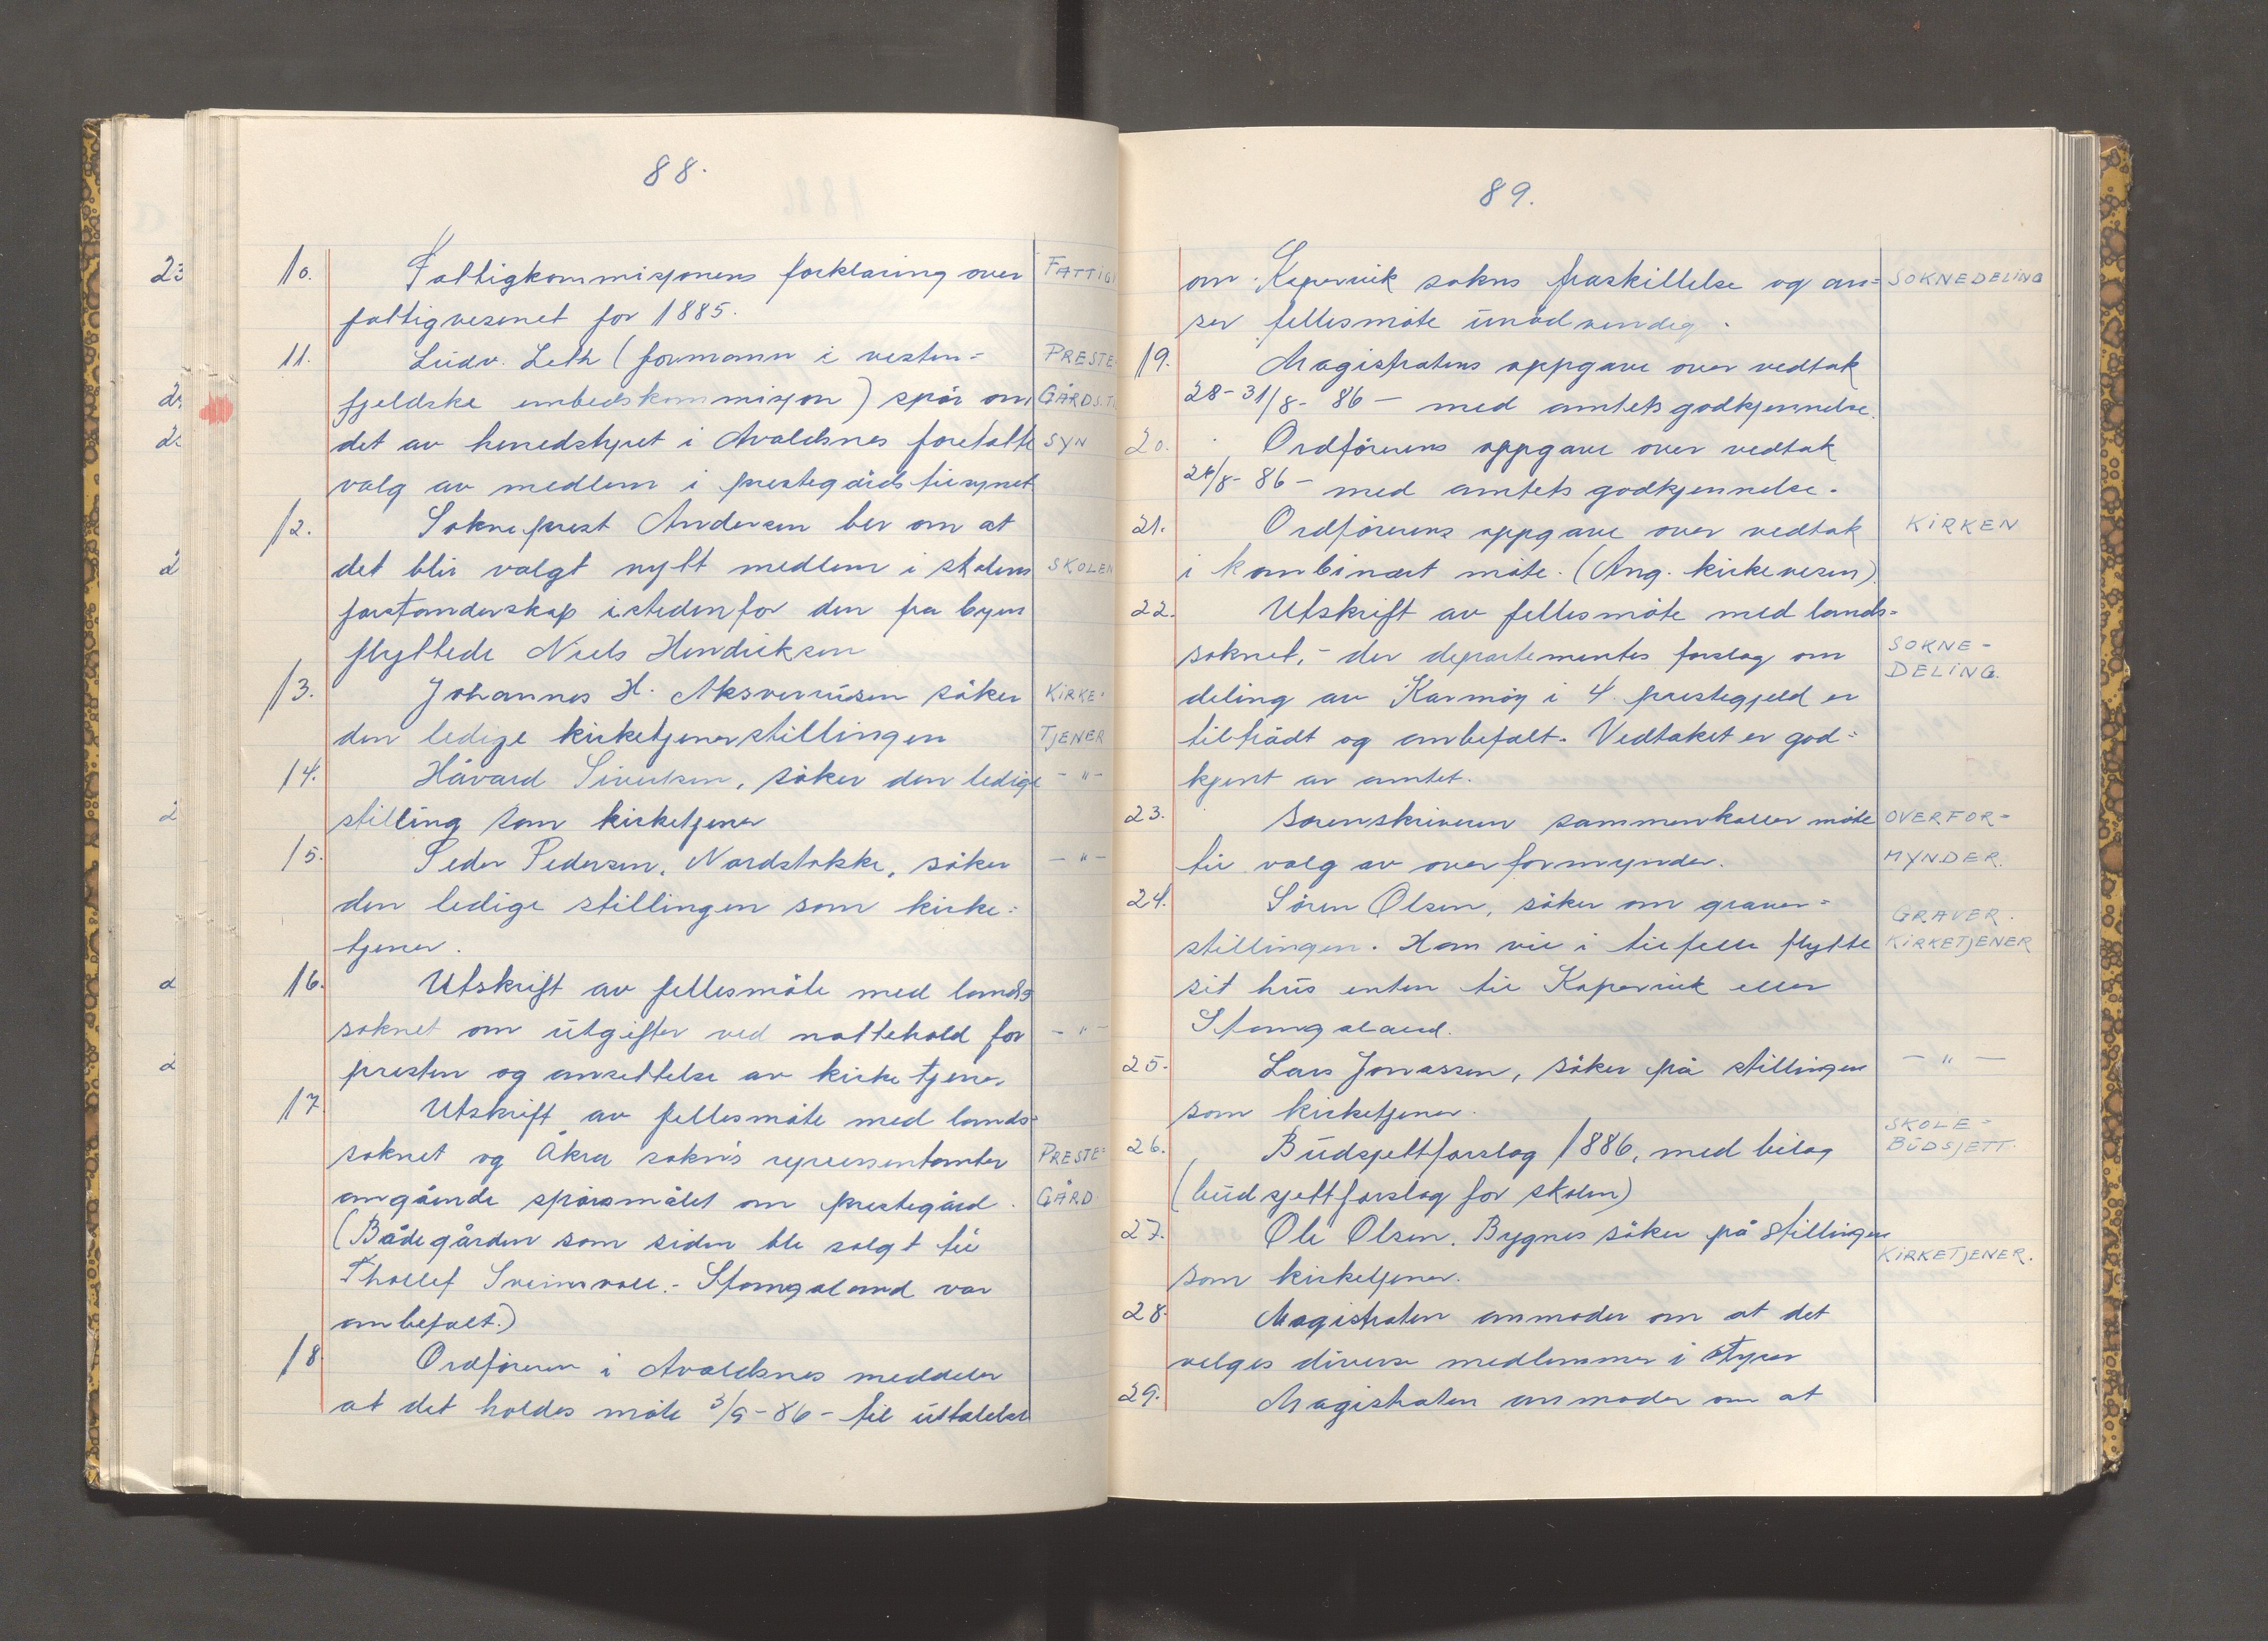 88.
10. Fattigkommisjonens forklaring over FATTIG
fattigvesenet for 1885.
11. Ludv. Leth (formann i vesten= PRESTE
fjeldske embedskommisjon) spør om GÅRDS.T.
det av herredstyret i Avaldsnes foretatte SYN
valg av medlem i prestegårds tilsynet
12. Sokneprest Andersen ber om at
det blir valgt nytt medlem i skolens SKOLEN
forstanderskap istedenfor den fra byen
flyttede Niels Hendriksen
13. Johannes H. Aksverusen söker KIRKE-
den ledige kirketjenerstillingen TJENER
14. Håvard Sivertsen, söker den ledige - " -
stilling som kirketjener
15. Peder Pedersen, Nordstokke, söker - " -
den ledige stillingen som kirke=
tjener.
16. Utskrift av fellesmöte med lands
soknet om utgifter ved nattehold for - " -
presten og ansettelse av kirketjener
17. Utskrift av fellesmöte med lands=
soknet og Åkra sokns representanter PRESTE=
angående spörsmålet om prestegård. GÅRD
(Bådegården som siden ble solgt til
Thollef Sveinsvoll.- Stangaland var
anbefalt.)
18. Ordföreren i Avaldsnes meddeler
at det holdes möte 3/9-86- til uttalelse
89.
om Kopervik sokns fraskillelse og an= SOKNEDELING
ser fellesmöte unödvendig.
19. Magistratens oppgave over vedtak
28-31/8-86- med amtets godkjennelse.
20. Ordförerens oppgave over vedtak
26/8-86- med amtets godkjennelse.
21. Ordförerens oppgave over vedtak KIRKEN
i kombinert möte. (Ang. kirkevesen)
22. Utskrift av fellesmöte med lands=
soknet,- der departementes forslag om SOKNE-
deling av Karmöy i 4 prestegjeld er DELING.
tilrådt og anbefalt. Vedtaket er god=
kjent av amtet.
23. Sorenskriveren sammenkaller möte OVERFOR-
til valg av overformynder. MYNDER.
24. Sören Olsen, söker om graver= GRAVER.
stillingen. Han vil i tilfelle flytte KIRKETJENER
sit hus enten til Kopervik eller
Stangaland.
25. Lars Jonassen, söker på stillingen - " -
som kirketjener.
26. Budsjettforslag 1886, med bilag SKOLE-
BUDSJETT.
(budsjettforslag for skolen)
27. Ole Olsen, Bygnes söker på stillingen
som kirketjener. KIRKETJENER.
28. Magistraten anmoder om at det
velges diverse medlemmer i styrer
29. Magistraten anmoder om at